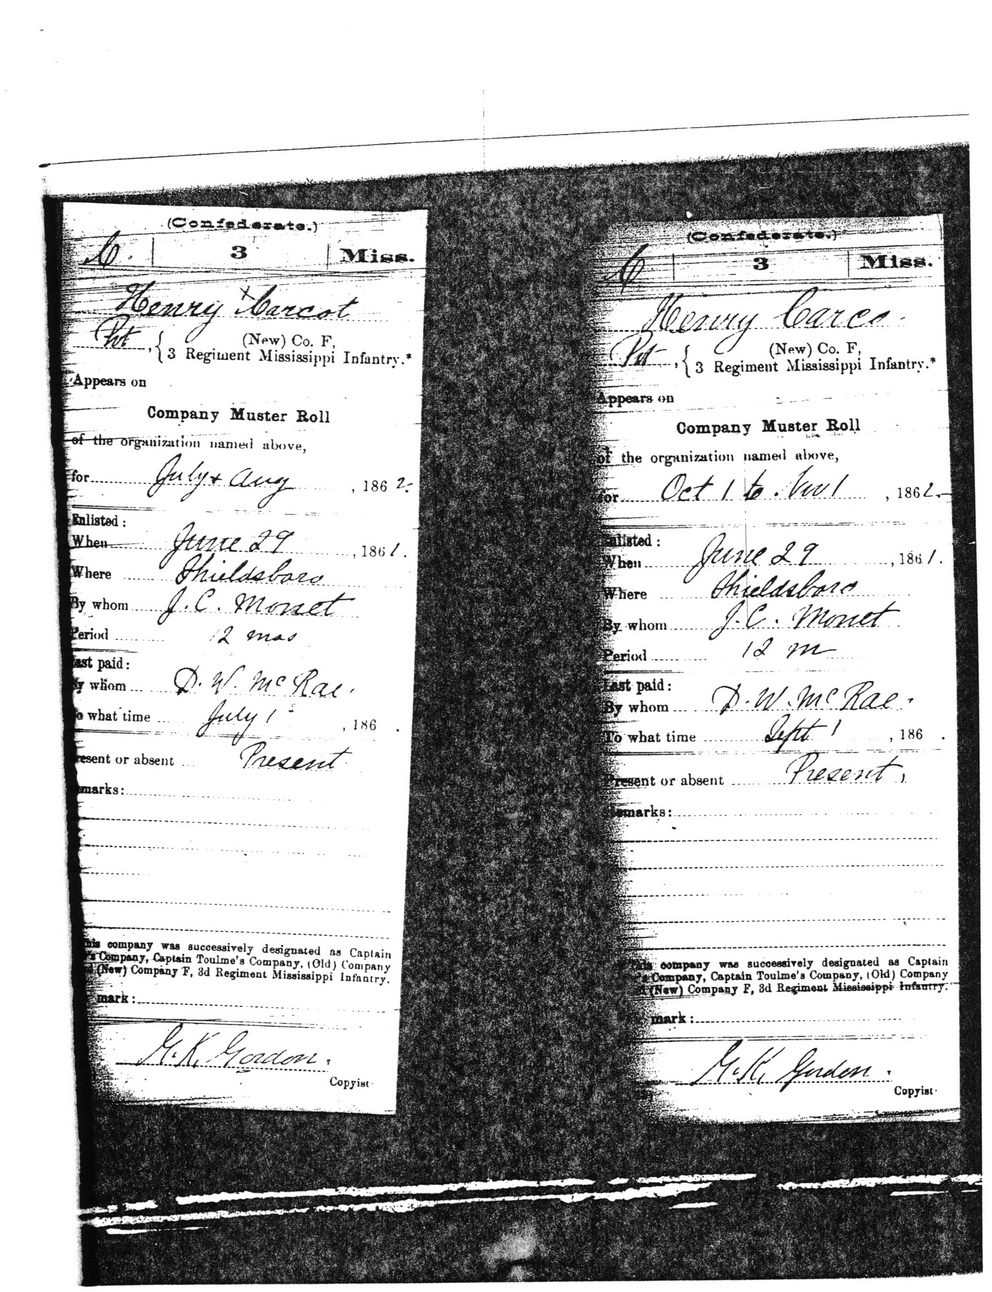 (Confederate.)
C. 3 Miss.
Henry x Carcot
Pvt , { (New) Co. F,
3 Regiment Mississippi Infantry.*
Appears on
Company Muster Roll
of the organization named above,
for July & Aug , 1862.
Enlisted:
When June 29 , 1861.
Where Shieldsboro
By whom J. C. Monet
Period 12 mos
ast paid:
y whom D. W. McRae.
o what time July 1 , 186 .
esent or absent Present
marks:
his company was successively designated as Captain
's Company, Captain Toulme's Company, (Old) Company
d (New) Company F, 3d Regiment Mississippi Infantry.
mark:
G. K. Gordon.
Copyist.
(Confederate.)
C 3 Miss.
Henry Carco.
Pvt , { (New) Co. F,
3 Regiment Mississippi Infantry.*
Appears on
Company Muster Roll
of the organization named above,
for Oct 1 to Nov 1 , 1862.
Enlisted:
When June 29 , 1861.
Where Shieldsboro
By whom J. C. Monet
Period 12 m
Last paid:
By whom D. W. McRae.
To what time Sept 1 , 186 .
Present or absent Present,
Remarks:
This company was successively designated as Captain
's Company, Captain Toulme's Company, (Old) Company
d (New) Company F, 3d Regiment Mississippi Infantry.
mark:
G. K. Gordon.
Copyist.